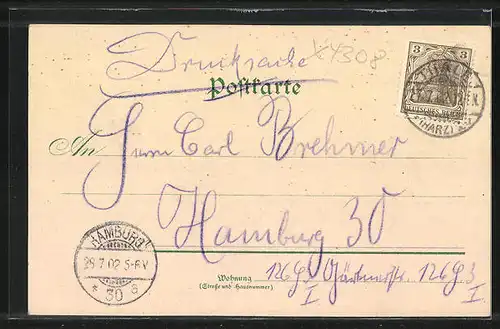 Drucksache X4308
Postkarte
3
DEUTSCHES REICH
THALE
(HARZ)
An Herrn Carl Brehmer
Hamburg 30
HAMBURG
29.7.02 5-6V
* 30 a
Wohnung
(Straße und Hausnummer)
126 Gärtnerstr. 126
I I